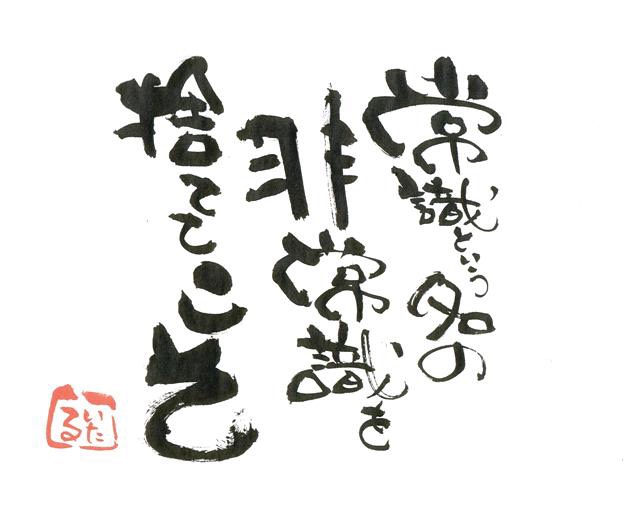 常識という名の
非常識を
捨ててこそ
いた
る